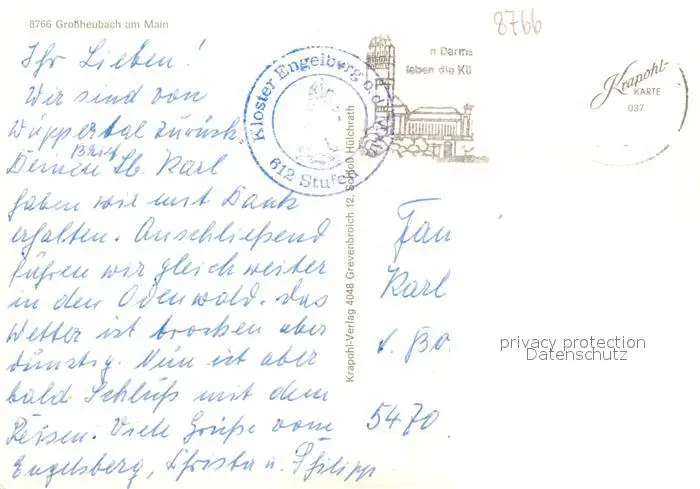 8766 Großheubach am Main
8766
Ihr Lieben!
Wir sind von
Wuppertal zurück.
Brief
Deinen Lb. Karl
haben wir mit Dank
erhalten. Anschließend
fuhren wir gleich weiter
in den Odenwald. Das
Wetter ist trocken aber
dunstig. Nun ist aber
bald Schluß mit dem
Reisen. Viele Grüße vom
Engelsberg, Christa u. Philipp
Kloster Engelberg a. d. Main
612 Stufen
n Darms
leben die Kü
Krapohl-Verlag 4048 Grevenbroich 12, Schloß Hülchrath
Krapohl-
KARTE
037
Fam
Karl
Bo
5470
privacy protection
Datenschutz